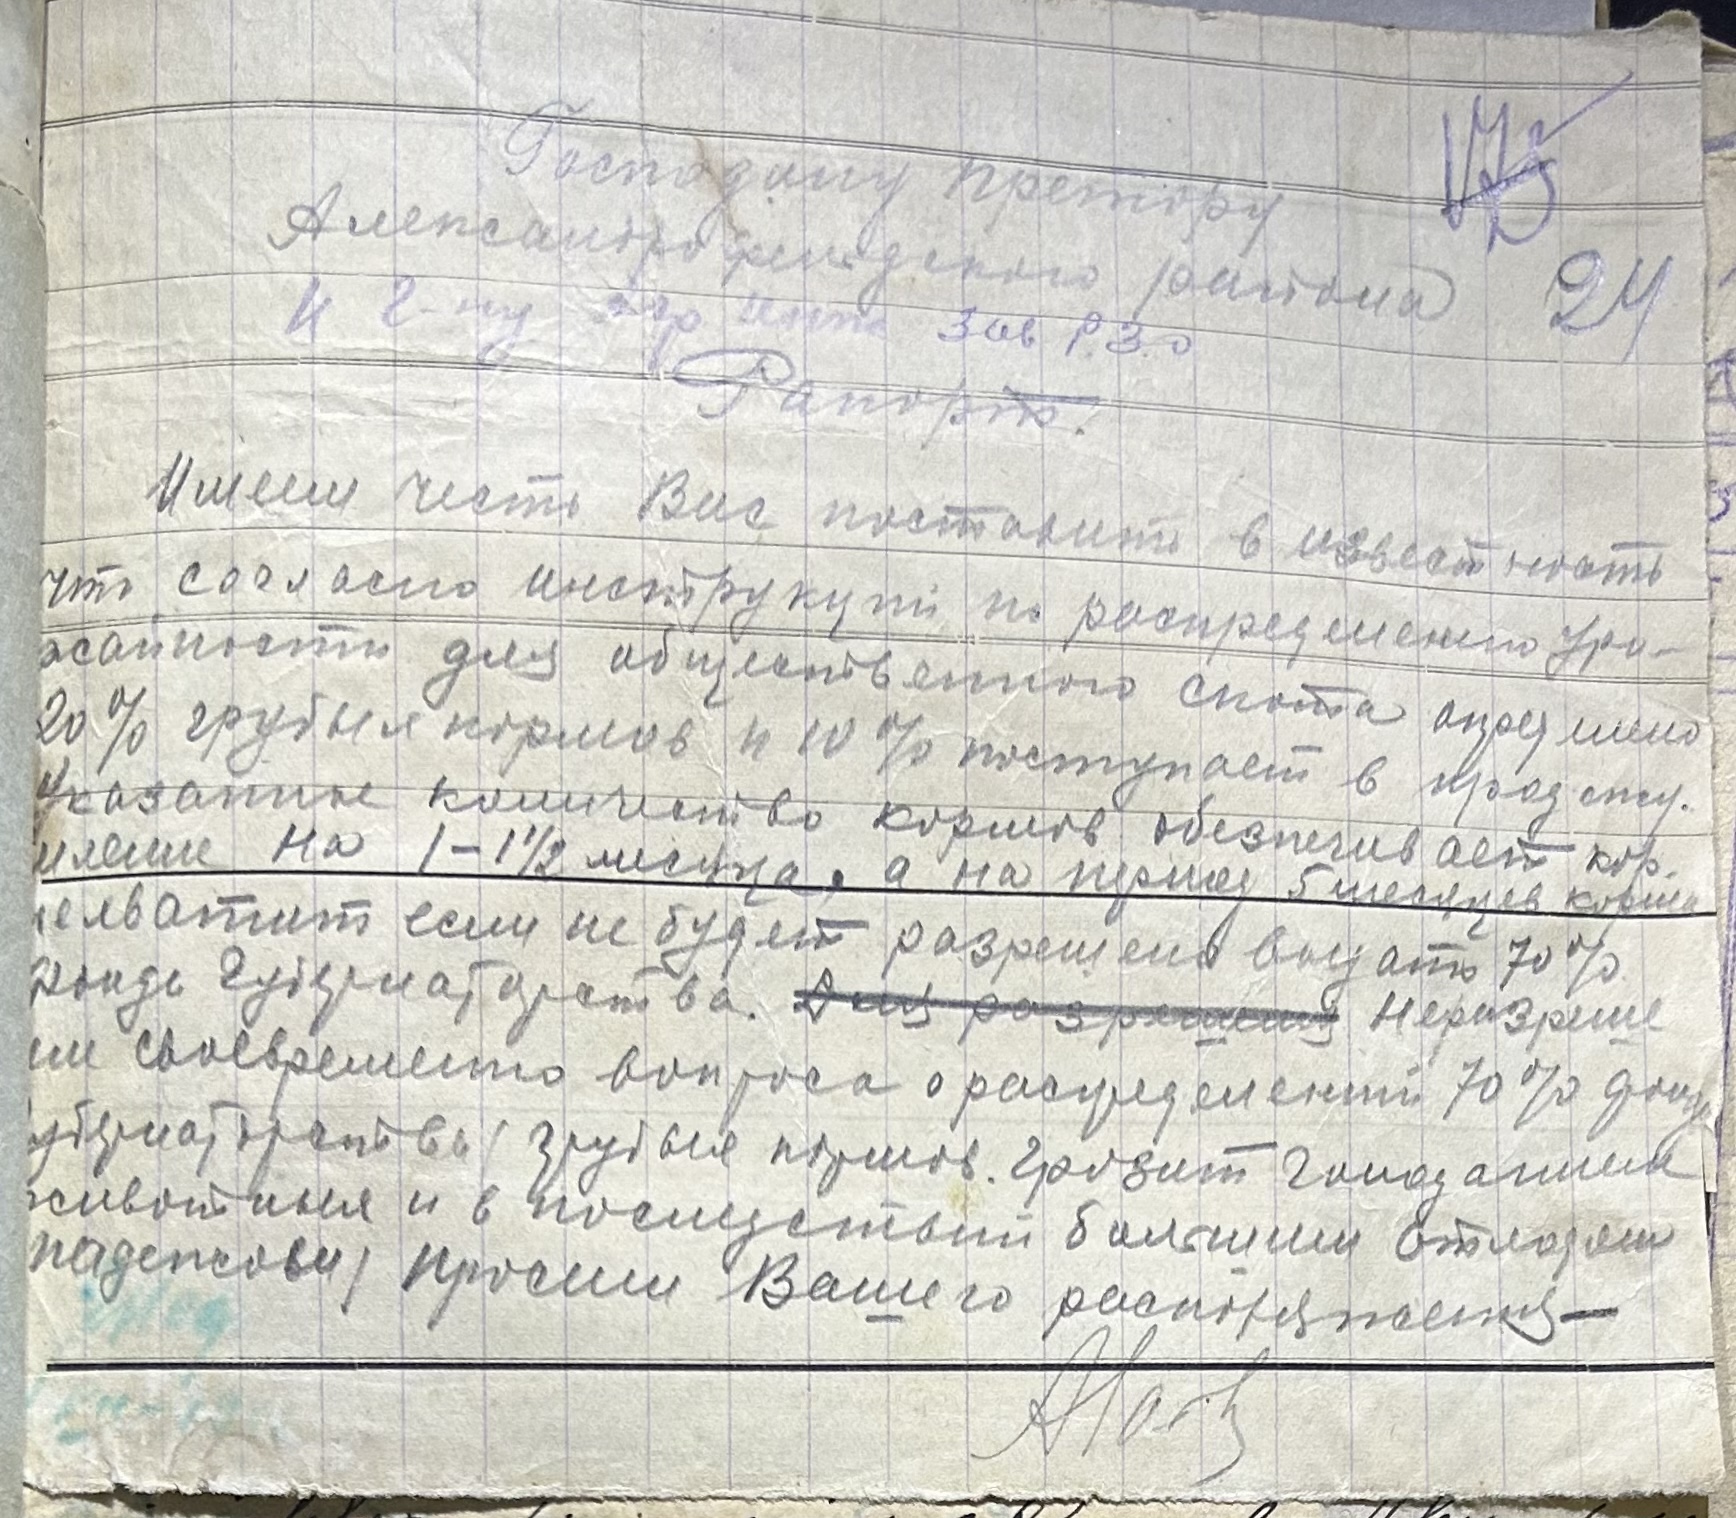 175
Господину Претору
Александрфельдского района 24
и г-ну Зав Р.З.О
Рапорт.
Имеем честь Вас поставить в известность
что согласно инструкции по распределению уро-
жайности для общественного скота определено
20% грубых кормов и 10% поступает в прод
Указанные количество кормов обезпечивает кор.
мление на 1-1½ месяца, а на период 5 месяцев корма
нехватит если не будет разрешено выдать 70%
фонда Губернаторства. Для разрешения Неразреше
ние своевременно вопроса о распределении 70% фонда
Губернаторства/ грубых кормов. Грозит голоданием
животных и в последствии большим отходом
/падежом/ Просим Вашего распоряжения—